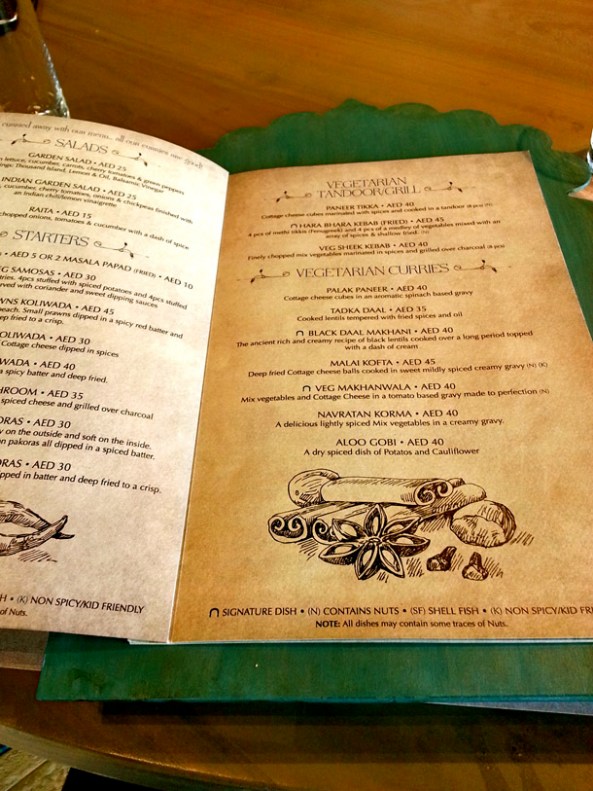 curried away with our menu...
SALADS
GARDEN SALAD • AED 25
lettuce, cucumber, carrots, cherry tomatoes & green peppers
Thousand Island, Lemon & Oil, Balsamic Vinegar
INDIAN GARDEN SALAD • AED 25
cucumber, cherry tomatoes, onions & chickpeas finished with
an Indian chili/lemon vinaigrette
RAITA • AED 15
chopped onions, tomatoes & cucumber with a dash of spice
STARTERS
• AED 5 OR 2 MASALA PAPAD (FRIED) • AED 10
SAMOSAS • AED 30
4pcs stuffed with spiced potatoes and 4pcs stuffed
served with coriander and sweet dipping sauces
KOLIWADA • AED 45
Small prawns dipped in a spicy red batter and
deep fried to a crisp.
KOLIWADA • AED 30
Cottage cheese dipped in spices
• AED 40
a spicy batter and deep fried.
• AED 35
spiced cheese and grilled over charcoal
• AED 30
on the outside and soft on the inside.
pakoras all dipped in a spiced batter.
• AED 30
dipped in batter and deep fried to a crisp.
• (K) NON SPICY/KID FRIENDLY
of Nuts.
VEGETARIAN
TANDOOR/GRILL
PANEER TIKKA • AED 40
Cottage cheese cubes marinated with spices and cooked in a tandoor
HARA BHARA KEBAB (FRIED) • AED 45
4 pcs of methi tikki (Fenugreek) and 4 pcs of a medley of vegetables mixed with an
array of spices & shallow fried. (N)
VEG SHEEK KEBAB • AED 40
Finely chopped mix vegetables marinated in spices and grilled over charcoal
VEGETARIAN CURRIES
PALAK PANEER • AED 40
Cottage cheese cubes in an aromatic spinach based gravy
TADKA DAAL • AED 35
Cooked lentils tempered with fried spices and oil
BLACK DAAL MAKHANI • AED 40
The ancient rich and creamy recipe of black lentils cooked over a long period topped
with a dash of cream
MALAI KOFTA • AED 45
Deep fried Cottage cheese balls cooked in sweet mildly spiced creamy gravy (N) (K)
VEG MAKHANWALA • AED 40
Mix vegetables and Cottage Cheese in a tomato based gravy made to perfection (N)(K)
NAVRATAN KORMA • AED 40
A delicious lightly spiced Mix vegetables in a creamy gravy.
ALOO GOBI • AED 40
A dry spiced dish of Potatos and Cauliflower
SIGNATURE DISH • (N) CONTAINS NUTS • (SF) SHELL FISH • (K) NON SPICY/KID
NOTE: All dishes may contain some traces of Nuts.